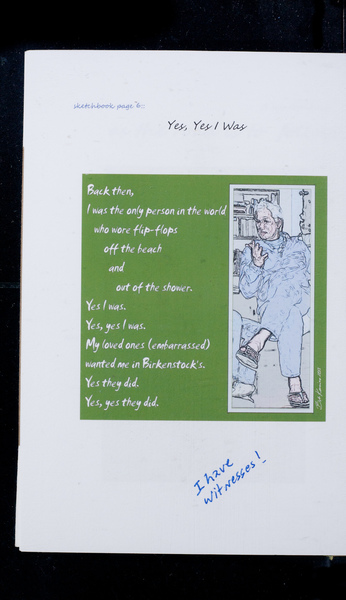 sketchbook page 6::
Yes, Yes I Was
Back then,
I was the only person in the world
who wore flip-flops
off the beach
and
out of the shower.
Yes I was.
Yes, yes I was.
My loved ones (embarrassed)
wanted me in Birkenstock's.
Yes they did.
Yes, yes they did.
I have
witnesses!